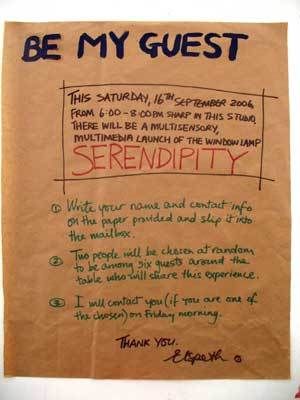 BE MY GUEST
THIS SATURDAY, 16TH SEPTEMBER 2006,
FROM 6:00-8:00PM SHARP IN THIS STUDIO,
THERE WILL BE A MULTISENSORY,
MULTIMEDIA LAUNCH OF THE WINDOW LAMP
SERENDIPITY
① Write your name and contact info
on the paper provided and slip it into
the mailbox.
② Two people will be chosen at random
to be among six guests around the
table who will share this experience.
③ I will contact you (if you are one of
the chosen) on Friday morning.
THANK YOU.
Elspeth